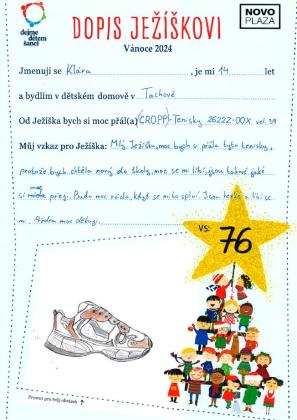 dejme
dětem
šanci
DOPIS JEŽÍŠKOVI
NOVO
PLAZA
Vánoce 2024
Jmenuji se Klára, je mi 14 let
a bydlím v dětském domově v Tachově
Od Ježíška bych si moc přál(a) (CROPP)-Tenisky 2622Z-00X vel. 39
Můj vzkaz pro Ježíška: Milý Ježíšku, moc bych si přála tyto tenisky,
protože bych chtěla nový do školy, moc se mi líbí, jsou takové jaké
si moc přeji. Budu moc ráda, když se mi to splní. Jsou hezké a líbí se
mi. Předem moc děkuji.
VS: 76
Prostor pro tvůj obrázek